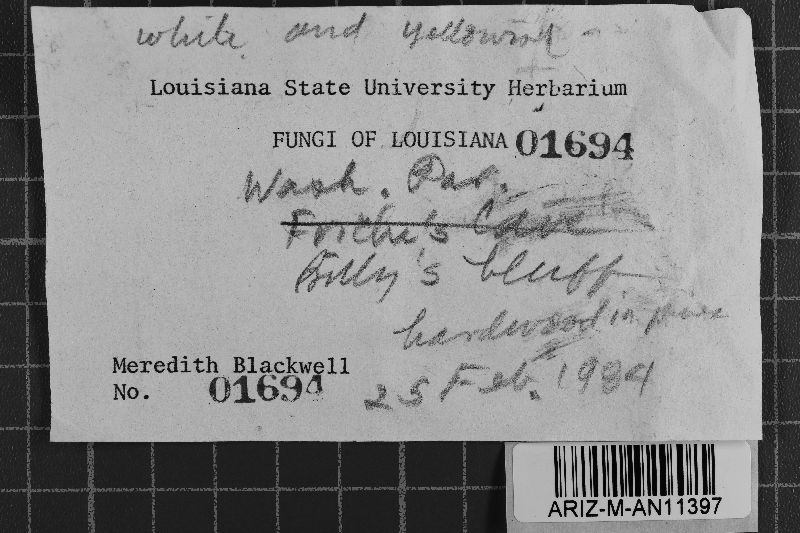 white and yellowish -
Louisiana State University Herbarium
FUNGI OF LOUISIANA 01694
Wash. Par.
Fritchie's Cave
Billy's bluff
hardwood in pine
Meredith Blackwell
No. 01694 25 Feb. 1984
ARIZ-M-AN11397